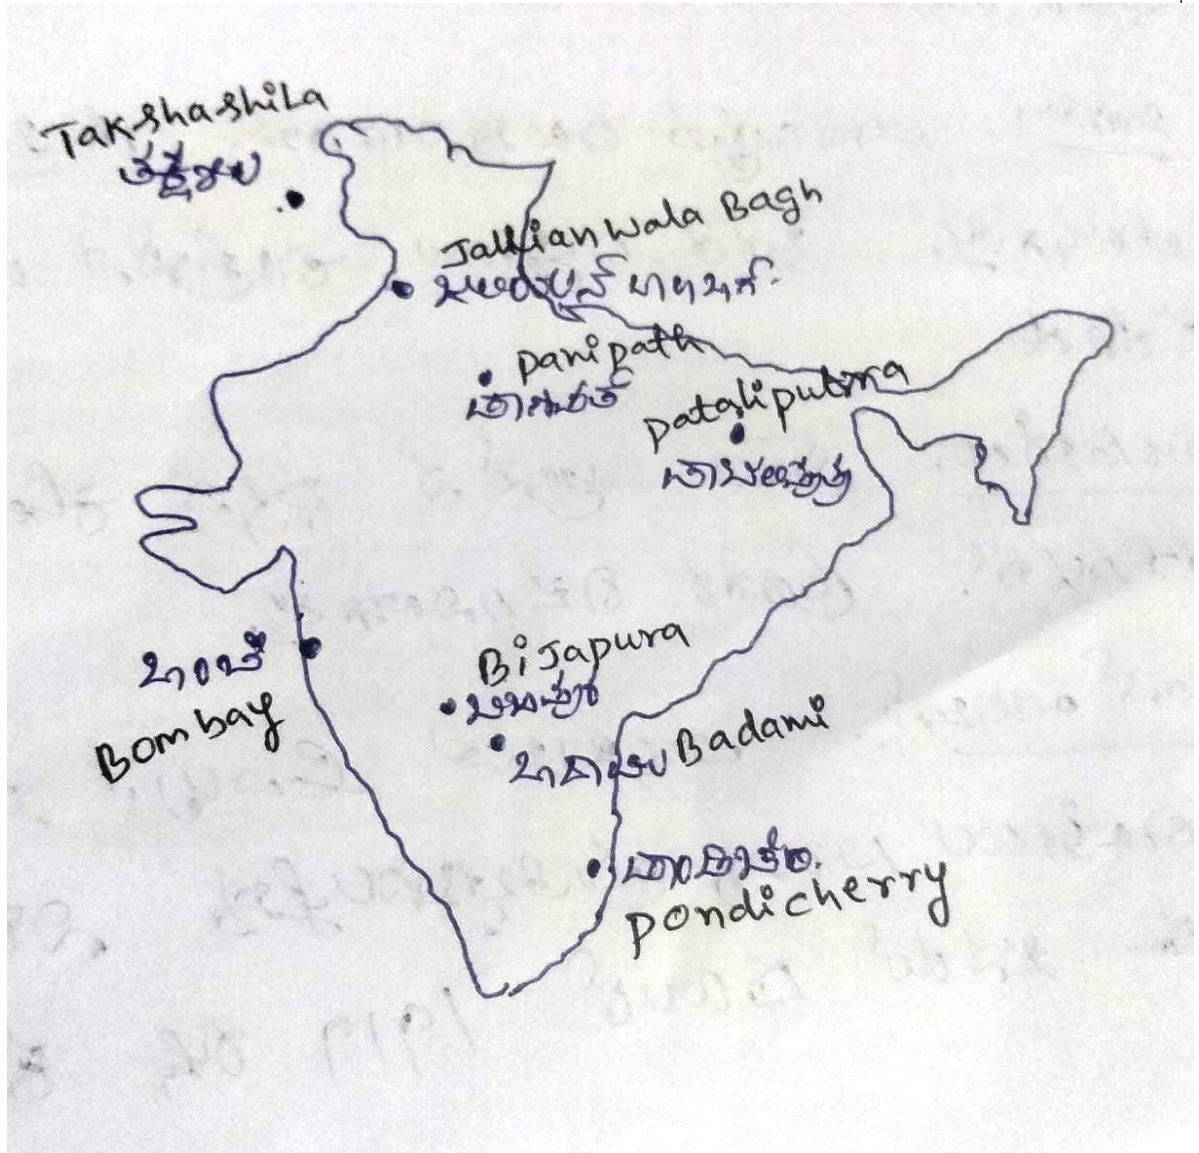 Takshashila
ತಕ್ಷಶಿಲ
Jallianwala Bagh
ಜಲಿಯನ್ ವಾಲಾಬಾಗ್
Panipath
ಪಾಣಿಪತ್
Pataliputra
ಪಾಟಲಿಪುತ್ರ
ಬಾಂಬೆ
Bombay
Bijapura
ಬಿಜಾಪುರ
ಬಾದಾಮಿ Badami
ಪಾಂಡಿಚೇರಿ.
Pondicherry